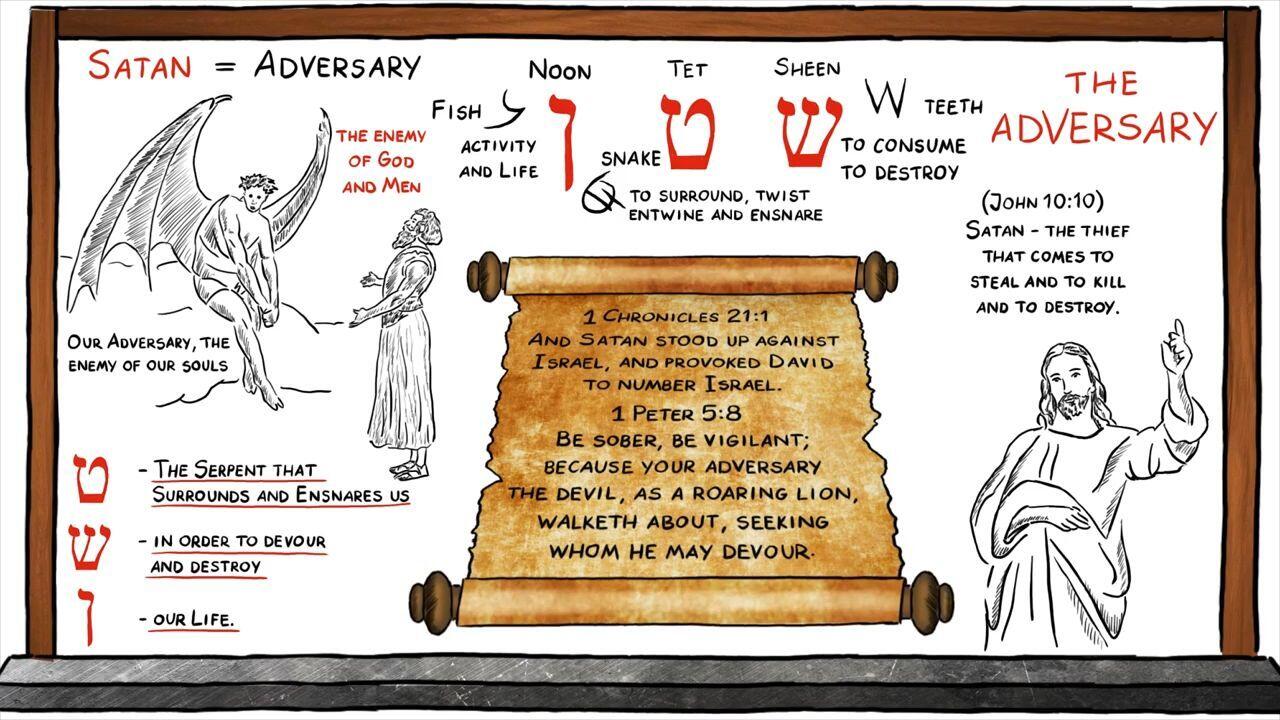 SATAN = ADVERSARY
THE ENEMY
OF GOD
AND MEN
OUR ADVERSARY, THE
ENEMY OF OUR SOULS
NOON
TET
SHEEN
FISH
ACTIVITY
AND LIFE
ן
ט
ש
SNAKE
TO SURROUND, TWIST
ENTWINE AND ENSNARE
TEETH
TO CONSUME
TO DESTROY
THE
ADVERSARY
(JOHN 10:10)
SATAN - THE THIEF
THAT COMES TO
STEAL AND TO KILL
AND TO DESTROY.
1 CHRONICLES 21:1
AND SATAN STOOD UP AGAINST
ISRAEL, AND PROVOKED DAVID
TO NUMBER ISRAEL.
1 PETER 5:8
BE SOBER, BE VIGILANT;
BECAUSE YOUR ADVERSARY
THE DEVIL, AS A ROARING LION,
WALKETH ABOUT, SEEKING
WHOM HE MAY DEVOUR.
ט - THE SERPENT THAT
SURROUNDS AND ENSNARES US
ש - IN ORDER TO DEVOUR
AND DESTROY
ן - OUR LIFE.